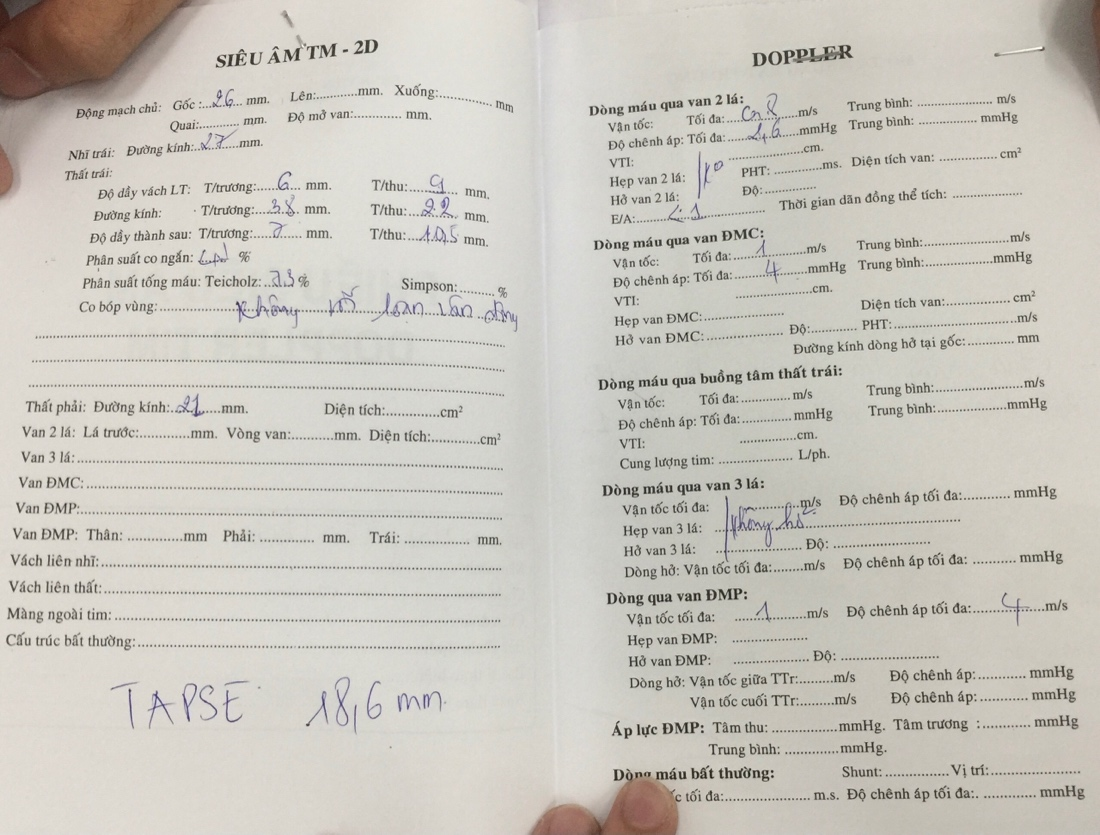 SIÊU ÂM TM - 2D
Động mạch chủ: Gốc :...26... mm. Lên:............mm. Xuống:............... mm
Quai:........... mm. Độ mở van:............... mm.
Nhĩ trái: Đường kính:..27.....mm.
Thất trái:
Độ dầy vách LT: T/trương:....6.... mm. T/thu:....9.... mm.
Đường kính: T/trương:...38... mm. T/thu:...22... mm.
Độ dầy thành sau: T/trương:...7..... mm. T/thu:..10,5.. mm.
Phân suất co ngắn: %
Phân suất tống máu: Teicholz:..73.% Simpson:........ %
Co bóp vùng:............... không rối loạn vận động
Thất phải: Đường kính:..21.....mm. Diện tích:............cm²
Van 2 lá: Lá trước:............mm. Vòng van:..........mm. Diện tích:............cm²
Van 3 lá:
Van ĐMC:
Van ĐMP:
Van ĐMP: Thân: .............mm Phải: ............. mm. Trái: ............... mm.
Vách liên nhĩ:
Vách liên thất:
Màng ngoài tim:
Cấu trúc bất thường:
TAPSE 18,6 mm.
DOPPLER
Dòng máu qua van 2 lá:
Vận tốc: Tối đa: m/s Trung bình: .................... m/s
Độ chênh áp: Tối đa: mmHg Trung bình: ................ mmHg
VTI: ....................cm.
Hẹp van 2 lá: ko PHT: ...............ms. Diện tích van: ............... cm²
Hở van 2 lá: Độ:..............
E/A:....< 1............... Thời gian dãn đồng thể tích: .................
Dòng máu qua van ĐMC:
Vận tốc: Tối đa:.....1.......m/s Trung bình:....................m/s
Độ chênh áp: Tối đa:......4......mmHg Trung bình:................mmHg
VTI: ....................cm.
Hẹp van ĐMC: .................... Diện tích van:............. cm²
Hở van ĐMC: .................... Độ:........... PHT:....................m/s
Đường kính dòng hở tại gốc:........... mm
Dòng máu qua buồng tâm thất trái:
Vận tốc: Tối đa: ............. m/s Trung bình:....................m/s
Độ chênh áp: Tối đa: ........... mmHg Trung bình:................mmHg
VTI: ...............cm.
Cung lượng tim: .................... L/ph.
Dòng máu qua van 3 lá:
Vận tốc tối đa: ...............m/s Độ chênh áp tối đa:........... mmHg
Hẹp van 3 lá: không hở
Hở van 3 lá: .................... Độ: ....................
Dòng hở: Vận tốc tối đa:........m/s Độ chênh áp tối đa: ........... mmHg
Dòng qua van ĐMP:
Vận tốc tối đa: .....1.......m/s Độ chênh áp tối đa:......4....m/s
Hẹp van ĐMP: ..................
Hở van ĐMP: .................. Độ: ....................
Dòng hở: Vận tốc giữa TTr:........m/s Độ chênh áp:............ mmHg
Vận tốc cuối TTr:........m/s Độ chênh áp:............ mmHg
Áp lực ĐMP: Tâm thu: ...............mmHg. Tâm trương : ........... mmHg
Trung bình: ...........mmHg.
Dòng máu bất thường: Shunt: ............... Vị trí:....................
tối đa:.................... m.s. Độ chênh áp tối đa:. ............ mmHg